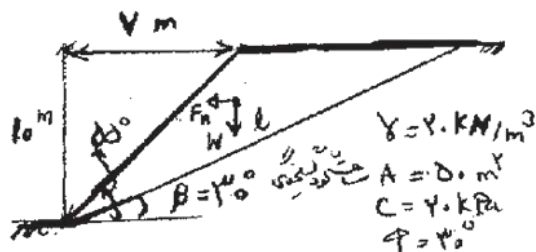 ۷ m
۱۰ m
۵۵°
Fh
W
l
β = ۳۰°
γ = ۲۰ kN/m³
A = ۵۰ m²
C = ۲۰ kPa
φ = ۳۰°